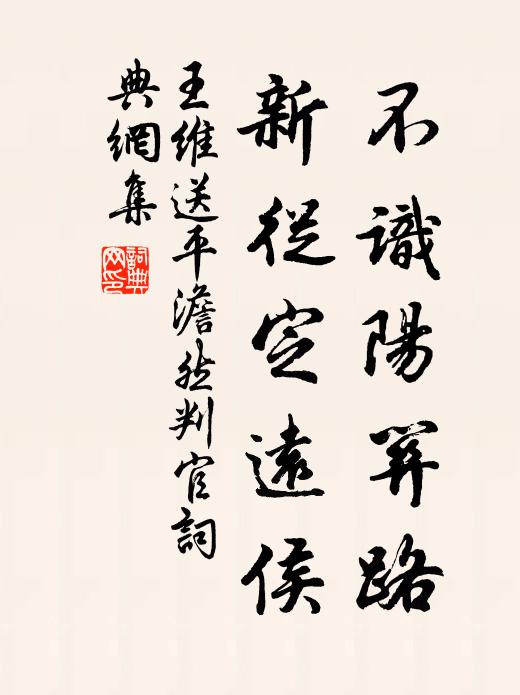 不識陽關路
新從定遠侯
王維送平澹然判官詞
典網集
詞典網印